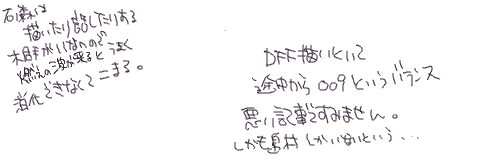 石森は
描いたり話したりする
相手がいないので
燃えの波が来ると うまく
消化できなくてこまる。
DFF描いといて
途中から009というバランス
悪い記事ですみません。
しかも島村しかいないという...